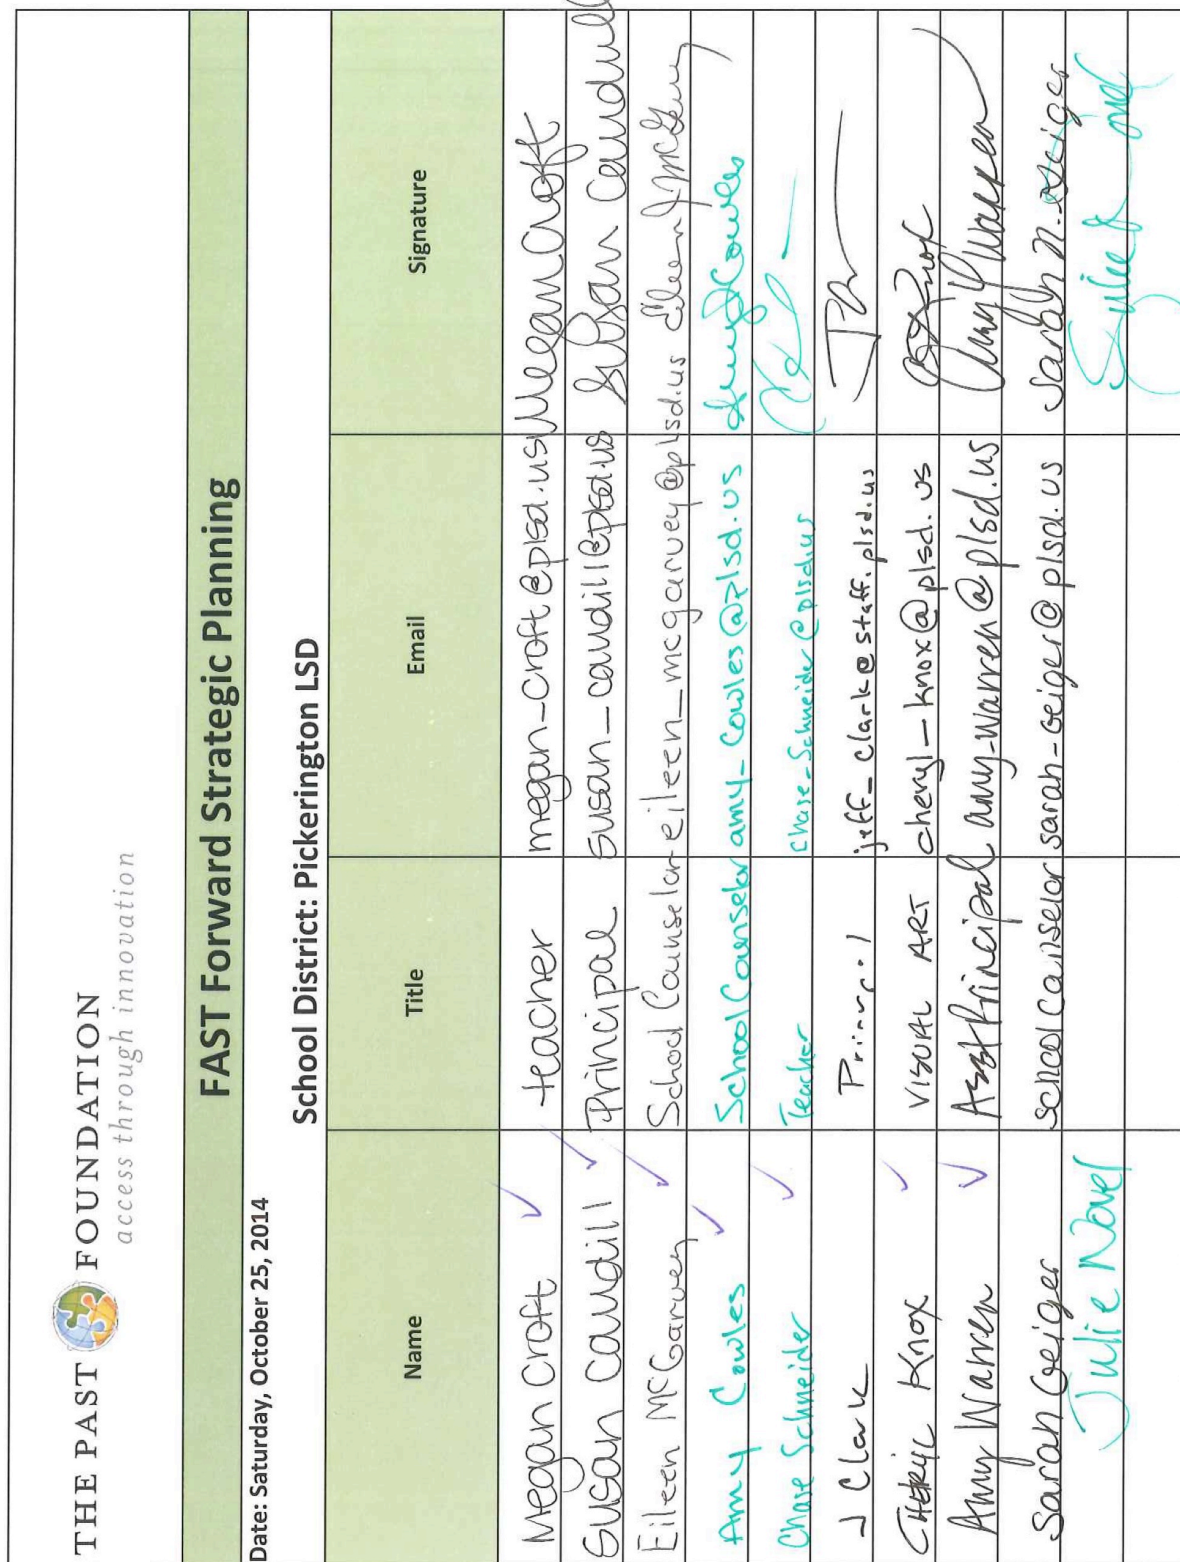 THE PAST FOUNDATION
access through innovation
FAST Forward Strategic Planning
Date: Saturday, October 25, 2014
School District: Pickerington LSD
Name Title Email Signature
Megan Croft teacher megan_croft@plsd.us Megan Croft
Susan Caudill Principal susan_caudill@plsd.us Susan Caudill
Eileen McGarvey School Counselor eileen_mcgarvey@plsd.us Eileen J McGarvey
Amy Cowles School Counselor amy_cowles@plsd.us Amy Cowles
Chase Schneider Teacher Chase_Schneider@plsd.us
J Clark Principal jeff_clark@staff.plsd.us
CHERYL KNOX VISUAL ART cheryl_knox@plsd.us
Amy Warren Asst Principal amy_warren@plsd.us Amy Warren
Sarah Geiger School Counselor sarah_geiger@plsd.us Sarah N. Geiger
Julie Novel